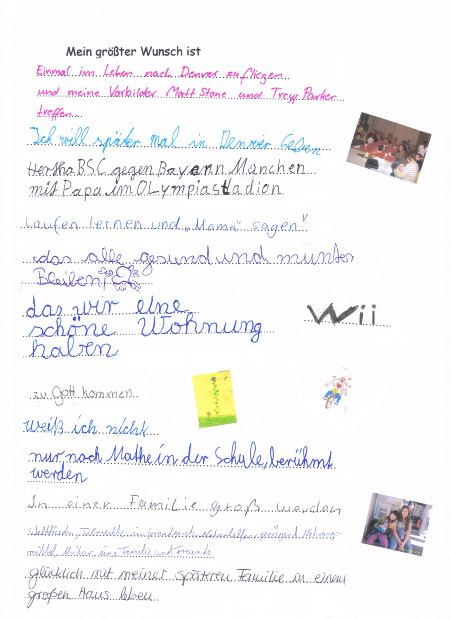 Mein größter Wunsch ist
Einmal im Leben nach Denver zu fliegen
und meine Vorbilder Matt Stone und Trey Parker
treffen
Ich will später mal in Denver Leben
Hertha BSC gegen Bayern München
mit Papa im OLympiastadion
Laufen lernen und „Mama“ sagen"
das alle gesund und munter
Bleiben
das wir eine
schöne Wohnung
haben
Wii
zu Gott kommen
weiß ich nicht
nur noch Mathe in der Schule, berühmt
werden
In einer Familie groß werden
Weltfrieden, genügend Nahrungs-
mittel, eine Familie und Freunde
glücklich mit meiner späteren Familie in einem
großen Haus leben